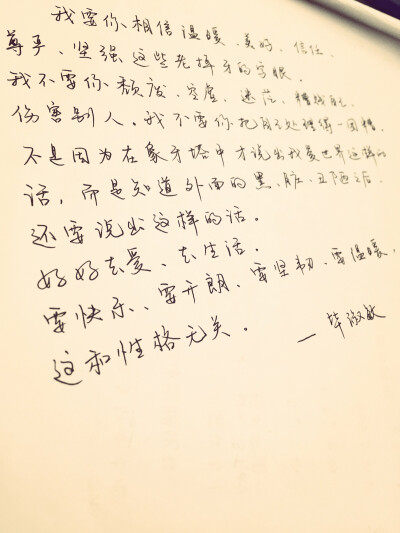 我要你相信温暖、美好、信任、
尊严、坚强这些老掉牙的字眼。
我不要你颓废、空虚、迷茫、糟践自己、
伤害别人。我不要你把自己处理得一团糟。
不是因为在象牙塔中才说出我爱世界这样的
话，而是知道外面的黑、脏、丑陋之后，
还要说出这样的话。
好好去爱、去生活。
要快乐、要开朗、要坚韧、要温暖，
这和性格无关。
— 毕淑敏